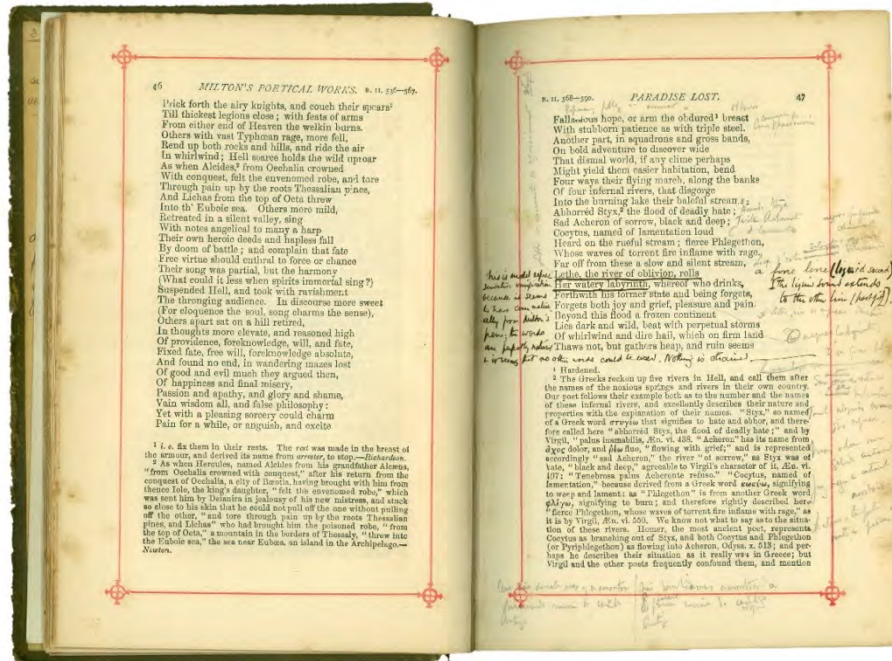 46 MILTON'S POETICAL WORKS. B. II. 536–567.
Prick forth the airy knights, and couch their spears¹
Till thickest legions close; with feats of arms
From either end of Heaven the welkin burns.
Others with vast Typhœan rage, more fell,
Rend up both rocks and hills, and ride the air
In whirlwind; Hell scarce holds the wild uproar
As when Alcides,² from Oechalia crowned
With conquest, felt the envenomed robe, and tore
Through pain up by the roots Thessalian pines,
And Lichas from the top of Octa threw
Into th' Euboic sea. Others more mild,
Retreated in a silent valley, sing
With notes angelical to many a harp
Their own heroic deeds and hapless fall
By doom of battle; and complain that fate
Free virtue should enthral to force or chance
Their song was partial, but the harmony
(What could it less when spirits immortal sing?)
Suspended Hell, and took with ravishment
The thronging audience. In discourse more sweet
(For eloquence the soul, song charms the sense),
Others apart sat on a hill retired,
In thoughts more elevate, and reasoned high
Of providence, foreknowledge, will, and fate,
Fixed fate, free will, foreknowledge absolute,
And found no end, in wandering mazes lost
Of good and evil much they argued then,
Of happiness and final misery,
Passion and apathy, and glory and shame,
Vain wisdom all, and false philosophy:
Yet with a pleasing sorcery could charm
Pain for a while, or anguish, and excite
¹ i. e. fix them in their rests. The rest was made in the breast of
the armour, and derived its name from arrester, to stop.—Richardson.
² As when Hercules, named Alcides from his grandfather Alcæus,
"from Oechalia crowned with conquest," after his return from the
conquest of Oechalia, a city of Bœotia, having brought with him from
thence Iole, the king's daughter, "felt the envenomed robe," which
was sent him by Deianira in jealousy of his new mistress, and stuck
so close to his skin that he could not pull off the one without pulling
off the other, "and tore through pain up by the roots Thessalian
pines, and Lichas" who had brought him the poisoned robe, "from
the top of Oeta," a mountain in the borders of Thessaly, "threw into
the Euboic sea," the sea near Eubœa, an island in the Archipelago.—
Newton.
B. II. 568–590. PARADISE LOST. 47
Fallacious hope, or arm the obdured¹ breast
With stubborn patience as with triple steel.
Another part, in squadrons and gross bands,
On bold adventure to discover wide
That dismal world, if any clime perhaps
Might yield them easier habitation, bend
Four ways their flying march, along the banks
Of four infernal rivers, that disgorge
Into the burning lake their baleful streams;
Abhorred Styx,² the flood of deadly hate;
Sad Acheron of sorrow, black and deep;
Cocytus, named of lamentation loud
Heard on the rueful stream; fierce Phlegethon,
Whose waves of torrent fire inflame with rage,
Far off from these a slow and silent stream,
Lethe, the river of oblivion, rolls
Her watery labyrinth, whereof who drinks,
Forthwith his former state and being forgets,
Forgets both joy and grief, pleasure and pain.
Beyond this flood a frozen continent
Lies dark and wild, beat with perpetual storms
Of whirlwind and dire hail, which on firm land
Thaws not, but gathers heap, and ruin seems
a fine line (liquid sound)
the liquid sound extends
to the other line
because it seems
to have come natur
ally from Milton's
pen; the words
are perfectly natural
it seems that no other words could be used. Nothing is strained.
¹ Hardened.
² The Greeks reckon up five rivers in Hell, and call them after
the names of the noxious springs and rivers in their own country.
Our poet follows their example both as to the number and the names
of these infernal rivers, and excellently describes their nature and
properties with the explanation of their names. "Styx," so named
of a Greek word στυγέω that signifies to hate and abhor, and there-
fore called here "abhorred Styx, the flood of deadly hate;" and by
Virgil, "palus inamabilis, Æn. vi. 438. "Acheron" has its name from
ἄχος dolor, and ῥέω fluo, "flowing with grief;" and is represented
accordingly "sad Acheron," the river "of sorrow," as Styx was of
hate, "black and deep," agreeable to Virgil's character of it, Æn. vi.
107: "Tenebrosa palus Acheronte refuso." "Cocytus, named of
lamentation," because derived from a Greek word κωκύω, signifying
to weep and lament: as "Phlegethon" is from another Greek word
φλέγω, signifying to burn; and therefore rightly described here
"fierce Phlegethon, whose waves of torrent fire inflame with rage," as
it is by Virgil, Æn. vi. 550. We know not what to say as to the situa-
tion of these rivers. Homer, the most ancient poet, represents
Cocytus as branching out of Styx, and both Cocytus and Phlegethon
(or Pyriphlegethon) as flowing into Acheron, Odyss. x. 513; and per-
haps he describes their situation as it really was in Greece; but
Virgil and the other poets frequently confound them, and mention